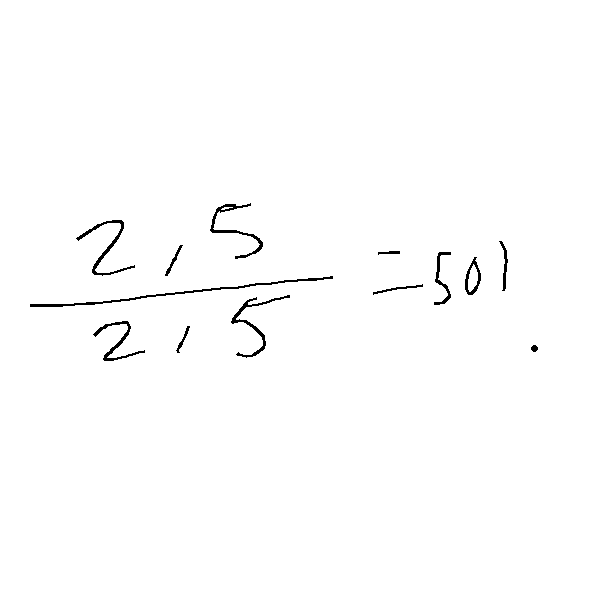 2,5
2,5 = 501.